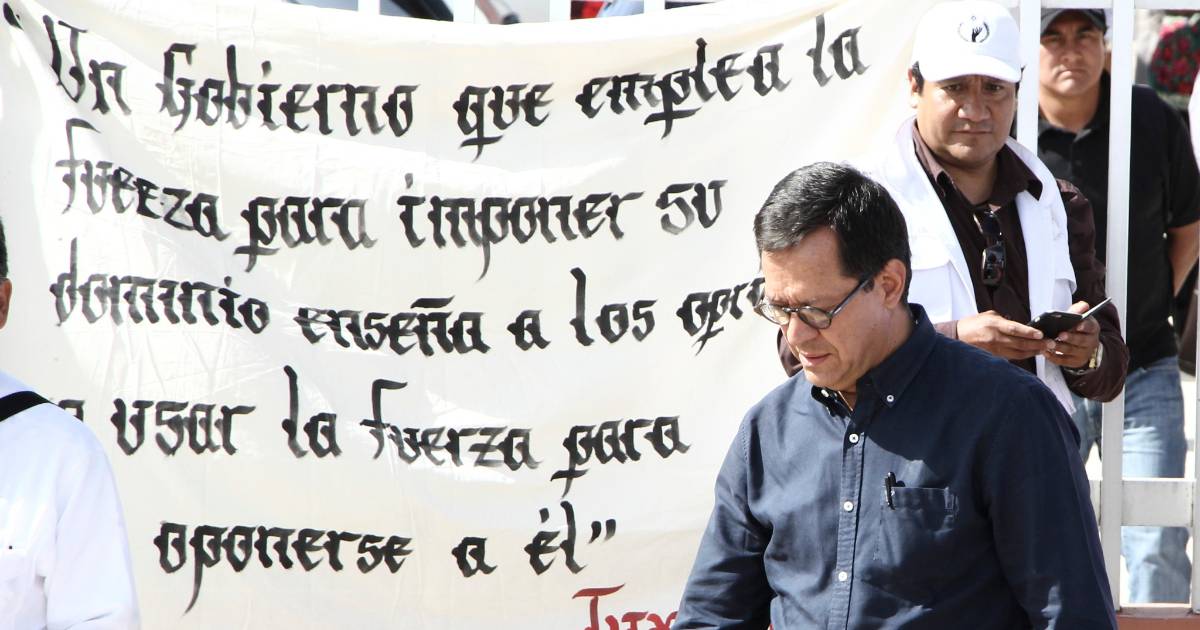 "Un Gobierno que emplea la
fuerza para imponer su
dominio enseña a los
a usar la fuerza para
oponerse a él"